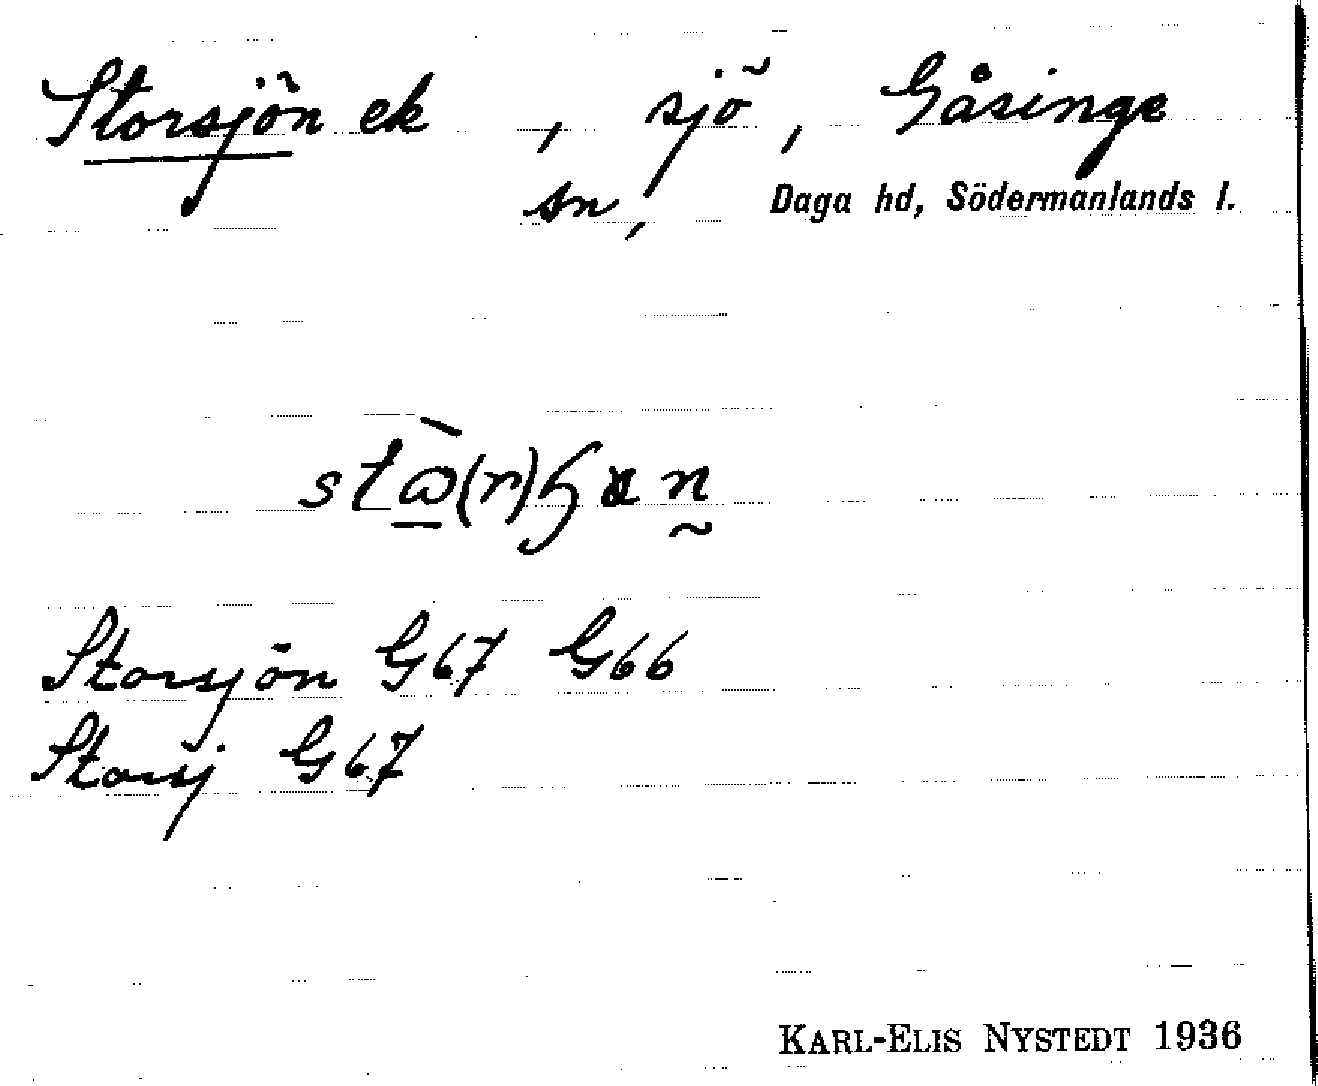 Storsjön ek , sjö, Gåsinge
sn, Daga hd, Södermanlands l.
Storsjön G67 G66
Storsj G67
KARL-ELIS NYSTEDT 1936